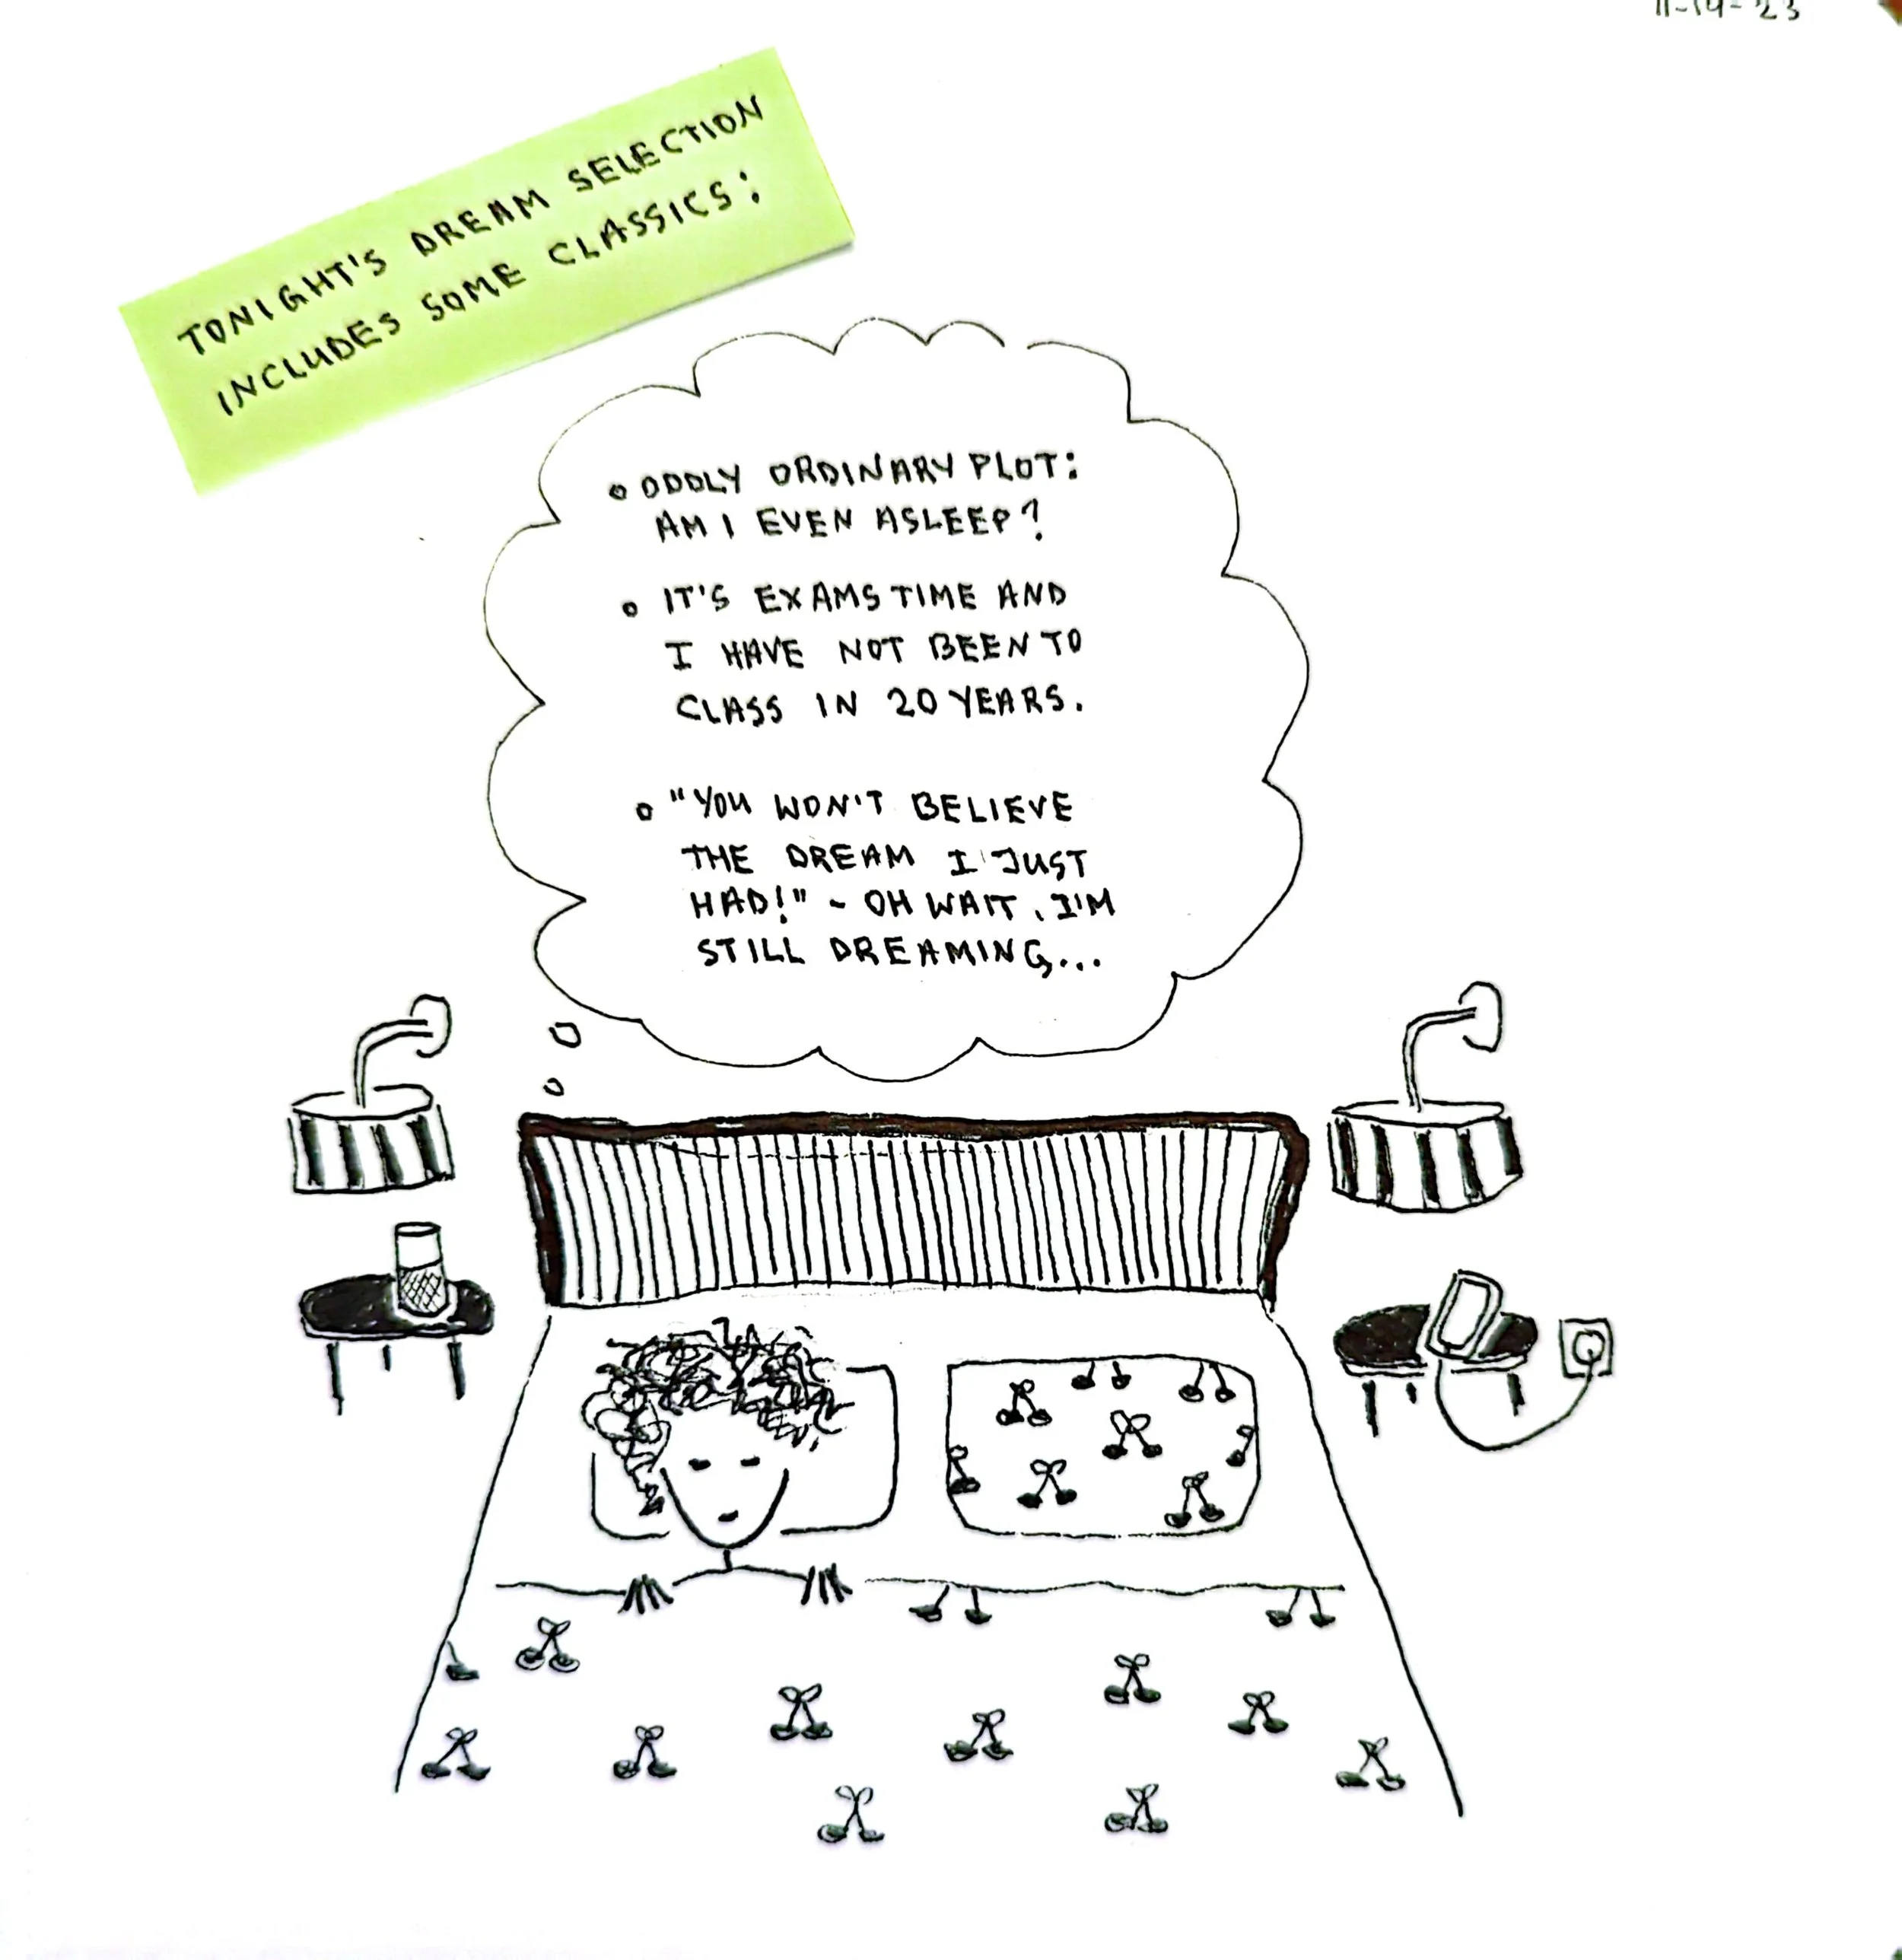 11-14-23
TONIGHT'S DREAM SELECTION
INCLUDES SOME CLASSICS:
• ODDLY ORDINARY PLOT:
AM I EVEN ASLEEP?
• IT'S EXAMS TIME AND
I HAVE NOT BEEN TO
CLASS IN 20 YEARS.
• "YOU WON'T BELIEVE
THE DREAM I JUST
HAD!" - OH WAIT, I'M
STILL DREAMING...